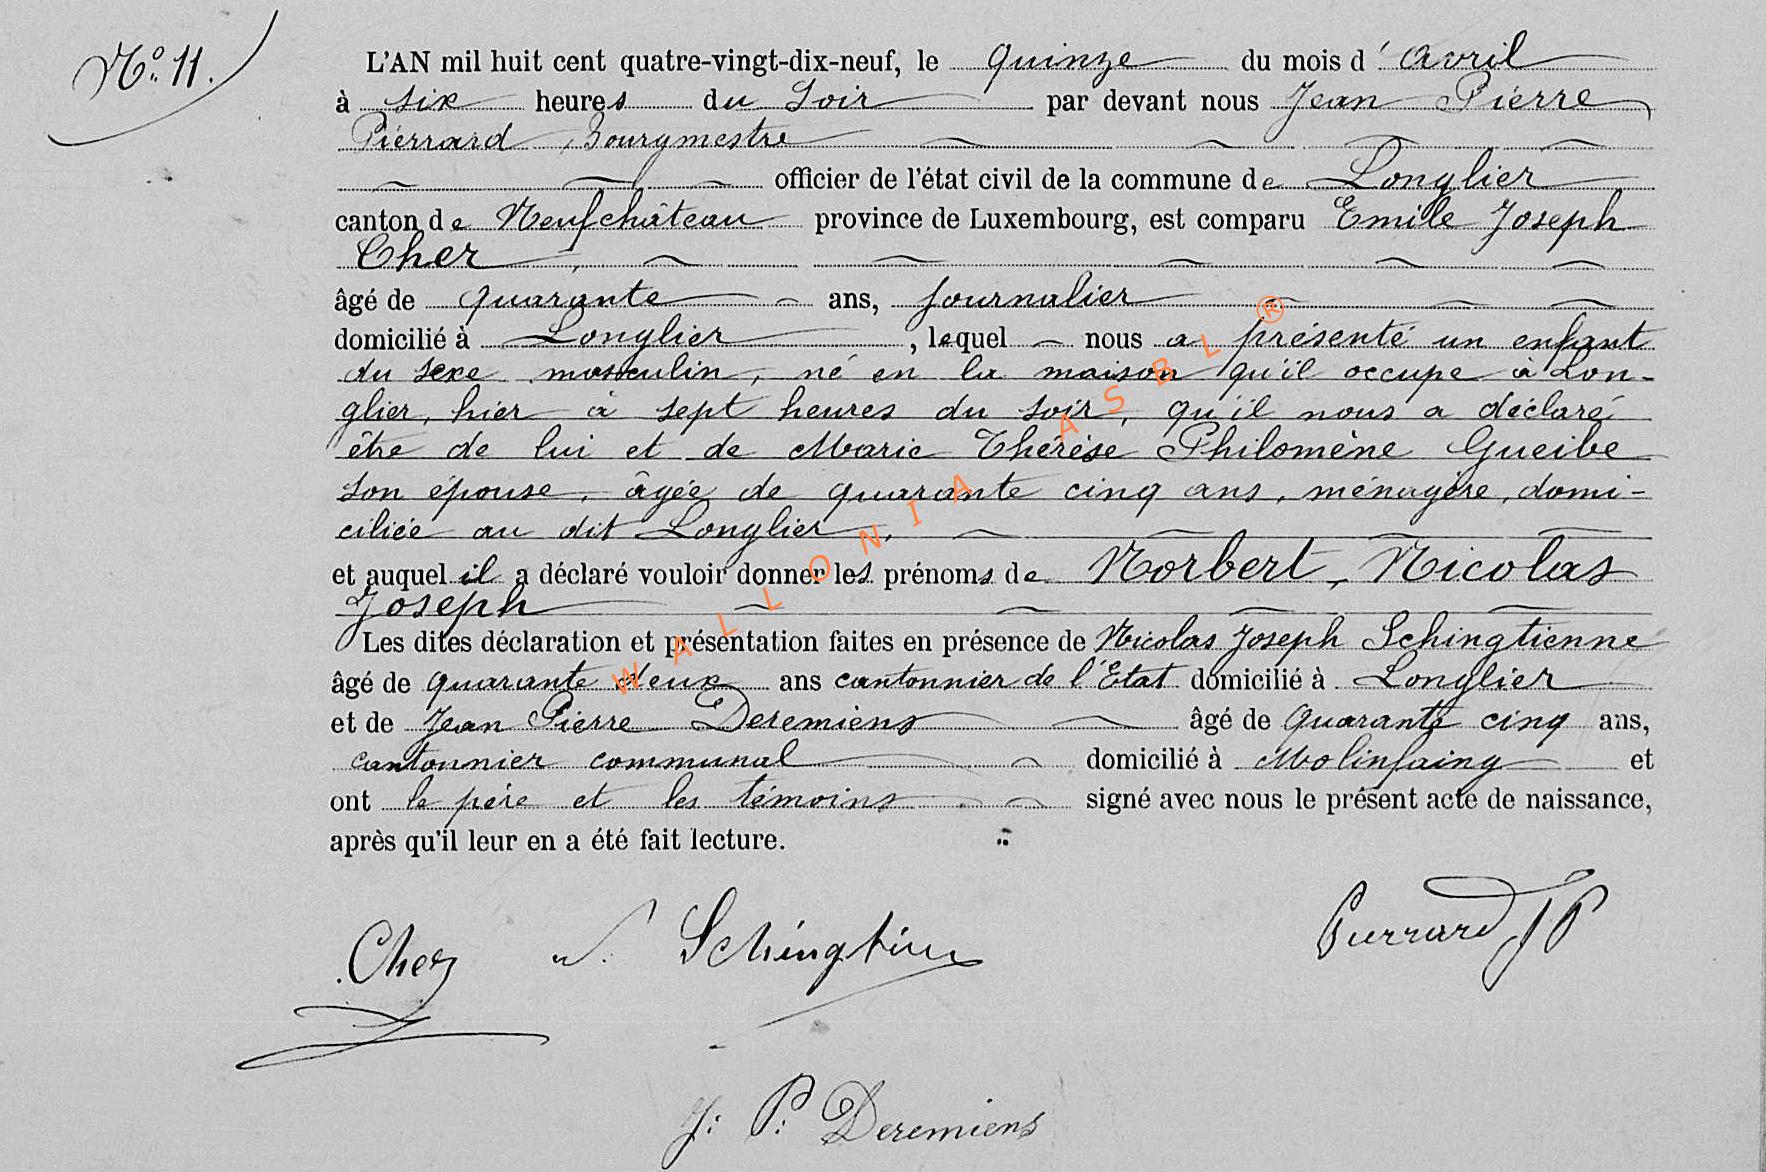 N° 11.
L'AN mil huit cent quatre-vingt-dix-neuf, le quinze du mois d'avril
à six heures du soir par devant nous Jean Pierre
Pierrard, Bourgmestre
officier de l'état civil de la commune de Longlier
canton de Neufchâteau province de Luxembourg, est comparu Emile Joseph
Cher,
âgé de quarante ans, journalier
domicilié à Longlier, lequel nous a présenté un enfant
du sexe masculin, né en la maison qu'il occupe à Lon-
glier, hier à sept heures du soir, qu'il nous a déclaré
être de lui et de Marie Thérèse Philomène Gueibe
son épouse, âgée de quarante cinq ans, ménagère, domi-
ciliée au dit Longlier,
et auquel il a déclaré vouloir donner les prénoms de Norbert, Nicolas
Joseph
Les dites déclaration et présentation faites en présence de Nicolas Joseph Schingtienne
âgé de quarante deux ans cantonnier de l'Etat domicilié à Longlier
et de Jean Pierre Deremiens âgé de quarante cinq ans,
cantonnier communal domicilié à Molinfaing et
ont le père et les témoins signé avec nous le présent acte de naissance,
après qu'il leur en a été fait lecture.
WALLONIA ASBL ®
Cher N. Schingtien Pierrard JP
J: P: Deremiens